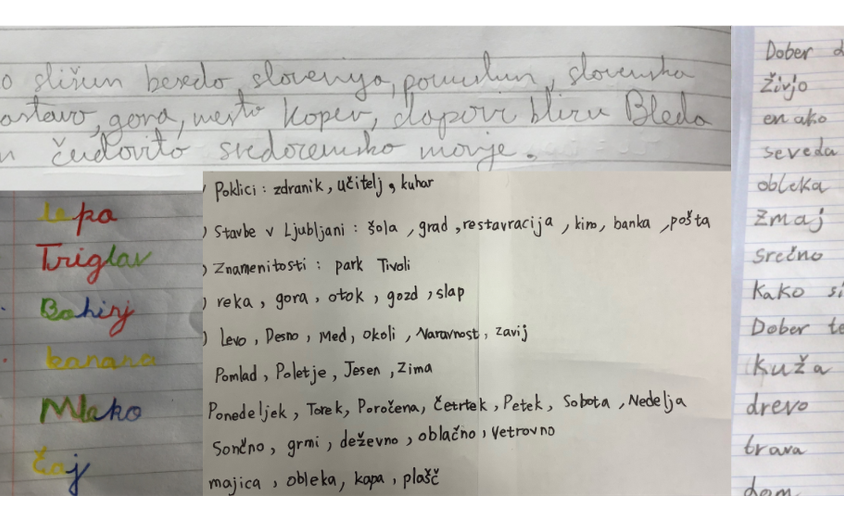 o slišim besedo slovenija, pomislim, slovenska
astavo, gora, mesto Koper, slapovi blizu Bleda
n čudovito sredozemsko morje.
lepa
Triglav
Bohinj
banana
Mleko
čaj
Poklici : zdranik, učitelj, kuhar
Stavbe v Ljubljani : šola, grad, restavracija, kino, banka, pošta
Znamenitosti : park Tivoli
reka, gora, otok, gozd, slap
Levo, Desno, Med, okoli, Naravnost, zavij
Pomlad, Poletje, Jesen, Zima
Ponedeljek, Torek, Poročena, Četrtek, Petek, Sobota, Nedelja
Sončno, grmi, deževno, oblačno, Vetrovno
majica, obleka, kapa, plašč
Dober d
Živjo
enako
seveda
obleka
Zmaj
srečno
Kako si
Dober te
Kuža
drevo
trava
dom